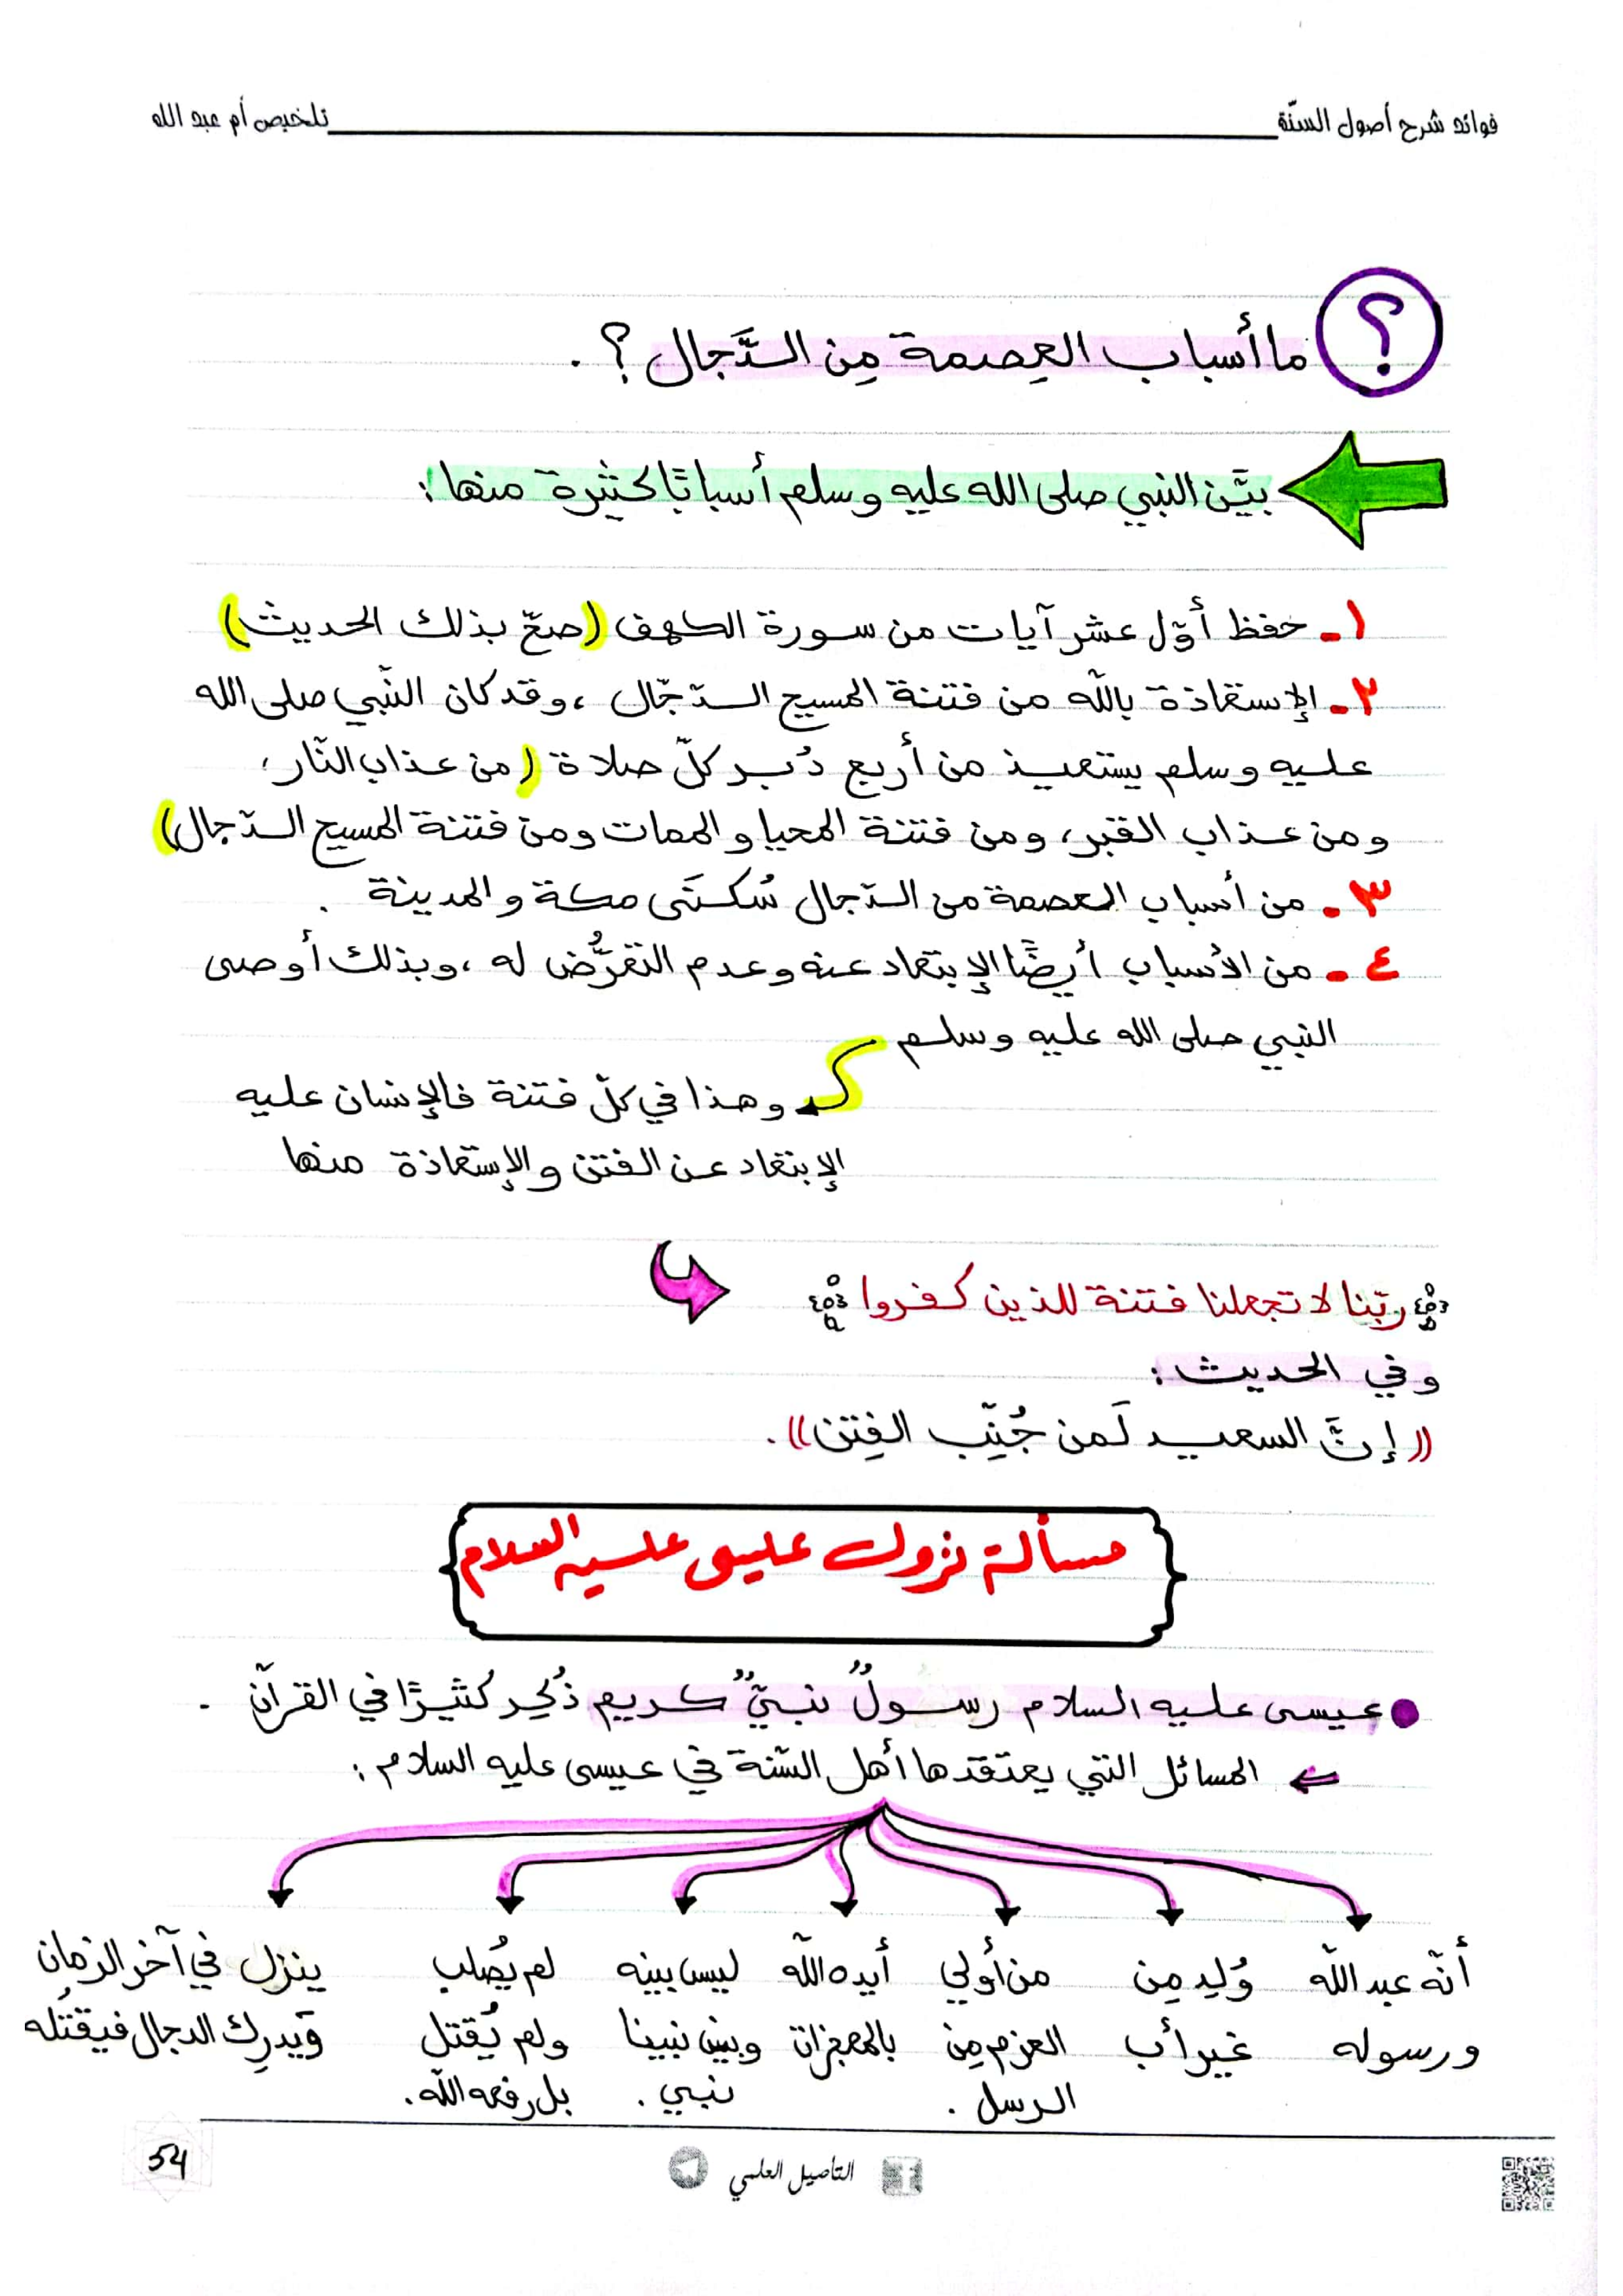 فوائد شرح أصول السنّة
تلخيص أم عبد الله
؟
ما أسباب العِصمة مِن الدَّجال ؟ .
بيَّن النبي صلى الله عليه وسلم أسبابًا كثيرة منها :
١- حفظ أوّل عشر آيات من سورة الكهف (صحّ بذلك الحديث)
٢- الإستعاذة بالله من فتنة المسيح الدّجّال ، وقد كان النّبي صلى الله
عليه وسلم يستعيذ من أربع دُبر كلّ صلاة (من عذاب النّار ،
ومن عذاب القبر ، ومن فتنة المحيا والممات ومن فتنة المسيح الدّجال)
٣- من أسباب العصمة من الدّجال سُكنَى مكة والمدينة .
٤- من الأسباب أيضًا الإبتعاد عنه وعدم التعرُّض له ، وبذلك أوصى
النبي صلى الله عليه وسلم
وهذا في كلّ فتنة فالإنسان عليه
الإبتعاد عن الفتن والإستعاذة منها
ربّنا لا تجعلنا فتنة للذين كفروا
وفي الحديث :
((إنَّ السعيد لَمن جُنِّب الفِتن)) .
مسألة نزول عيسى عليه السلام
عيسى عليه السلام رسولٌ نبيٌّ كريم ذُكِر كثيرًا في القرآن .
المسائل التي يعتقدها أهل السّنة في عيسى عليه السلام :
أنّه عبد الله
ورسوله
وُلِد مِن
غير أب
من أُولي
العزم مِن
الرسل .
أيده اللّه
بالمعجزات
ليس بينه
وبين نبينا
نبي .
لم يُصلب
ولم يُقتل
بل رفعه اللّه .
ينزل في آخر الزمان
ويَدرِك الدجال فيقتُله
التأصيل العلمي
54